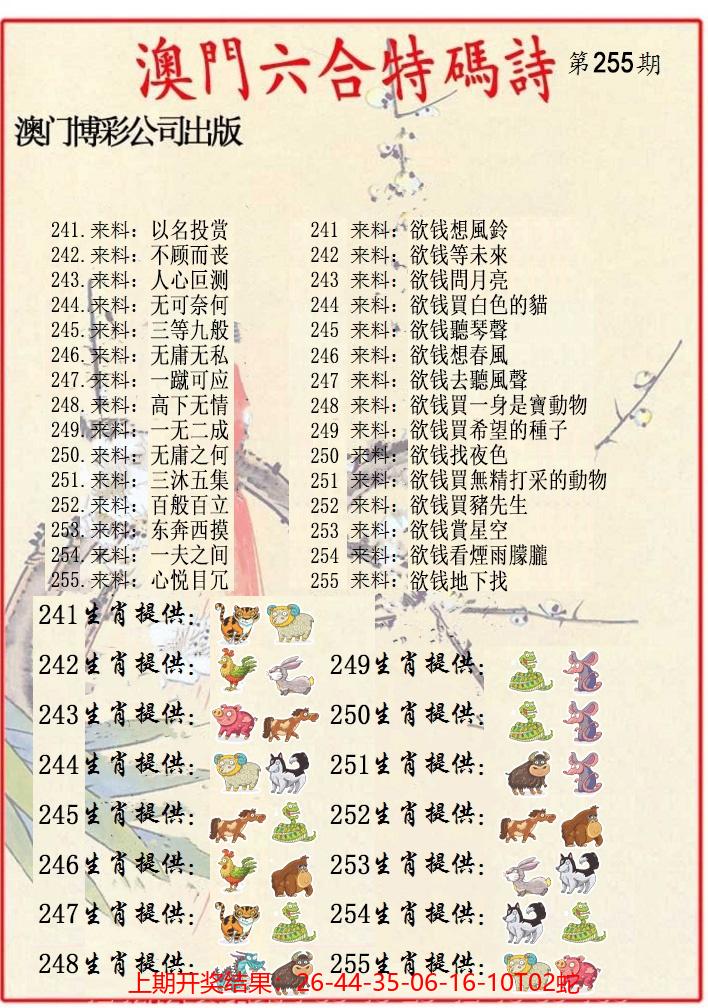 澳門六合特碼詩 第255期
澳门博彩公司出版
241.来料：以名投赏
242.来料：不顾而丧
243.来料：人心叵测
244.来料：无可奈何
245.来料：三等九般
246.来料：无庸无私
247.来料：一蹴可应
248.来料：高下无情
249.来料：一无二成
250.来料：无庸之何
251.来料：三沐五集
252.来料：百般百立
253.来料：东奔西摸
254.来料：一夫之间
255.来料：心悦目冗
241 来料：欲钱想風鈴
242 来料：欲钱等未來
243 来料：欲钱問月亮
244 来料：欲钱買白色的貓
245 来料：欲钱聽琴聲
246 来料：欲钱想春風
247 来料：欲钱去聽風聲
248 来料：欲钱買一身是寶動物
249 来料：欲钱買希望的種子
250 来料：欲钱找夜色
251 来料：欲钱買無精打采的動物
252 来料：欲钱買豬先生
253 来料：欲钱賞星空
254 来料：欲钱看煙雨朦朧
255 来料：欲钱地下找
241生肖提供：
242生肖提供：
243生肖提供：
244生肖提供：
245生肖提供：
246生肖提供：
247生肖提供：
248生肖提供：
249生肖提供：
250生肖提供：
251生肖提供：
252生肖提供：
253生肖提供：
254生肖提供：
255生肖提供：
上期开奖结果：26-44-35-06-16-10T02蛇